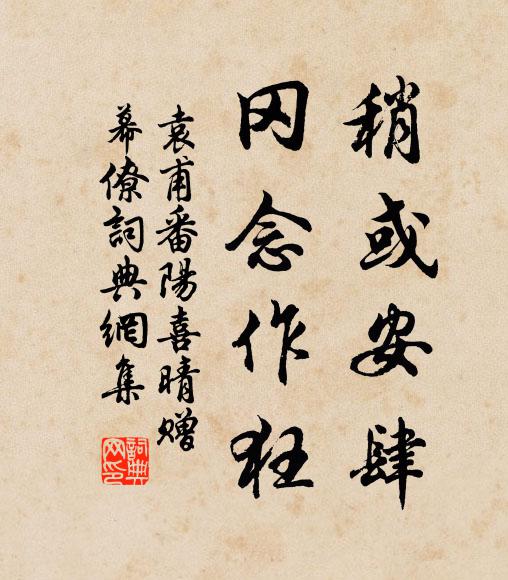 稍或安肆
罔念作狂
袁甫番陽喜晴贈
幕僚詞典網集
詞典网印